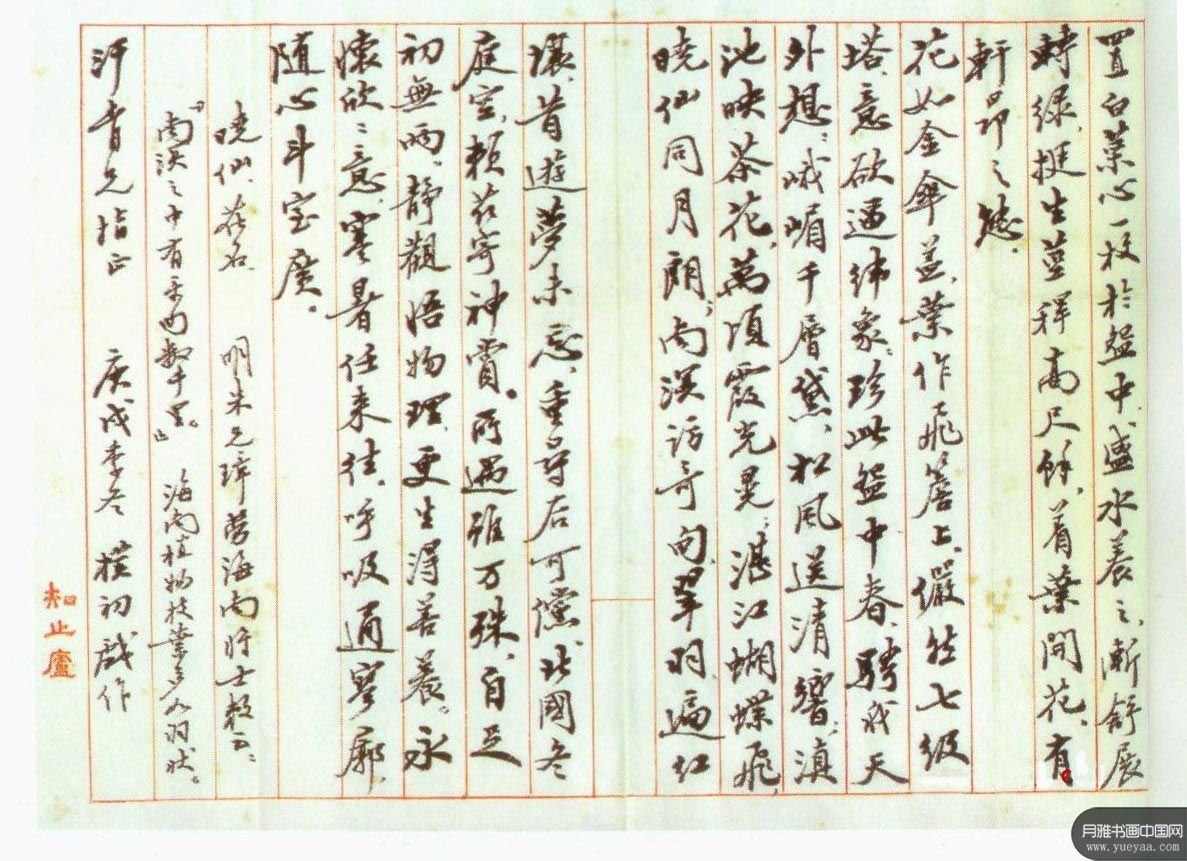 置白菜心一枚於盌中,盛水養之,漸舒展
轉綠,挺生莖稈高尺餘,着葉開花,有
軒昂之態。
花如金傘蓋,葉作飛簷上,儼然七級
塔,意欲逼緯象。珍此盌中春,騁我天
外想:峨嵋千層黛,松風送清響;滇
池映茶花,萬頃霞光晃;湛江蝴蝶飛,
曉仙同月朗;南溟訪奇甸,翠羽遍紅
壤。昔遊夢未忘,重尋后可儻。北國冬
庭空,賴茲寄神賞。所遇雖万殊,自足
初無兩。靜觀悟物理,更生得善養。永
懷欣欣意,寒暑任來往。呼吸通寥廓,
随心斗室廣。
曉仙 花名
明朱元璋勞海南將士敕云:
『南溟之中有奇甸数千里。』
海南植物枝葉多如羽狀。
汗青兄指正
庚戌季冬
樸初戲作
知止廬
月雅书画中国网
www.yueyaa.com